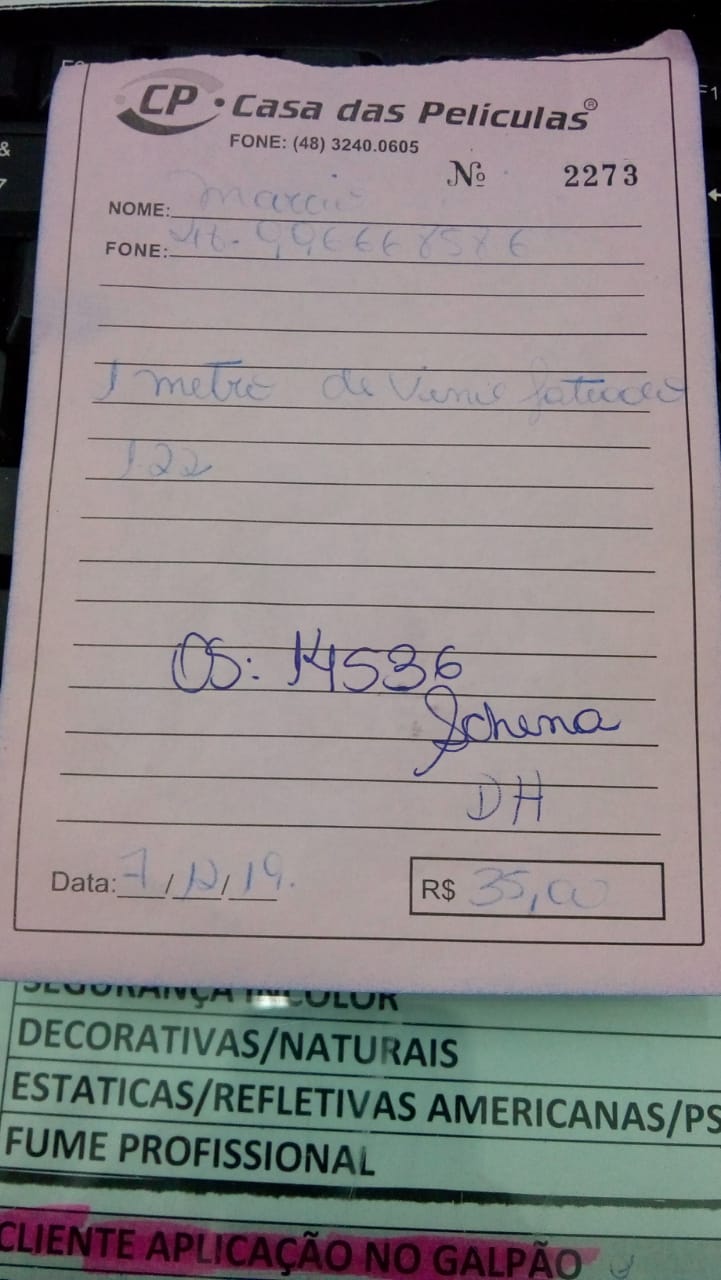 CP • Casa das Películas®
FONE: (48) 3240.0605
Nº 2273
NOME: Marcio
FONE:
1 metro de Vinil Jateado
1.22
OS: 14536
Schena
DH
Data: 7/12/19.
R$ 35,00
SEGURANÇA INCOLOR
DECORATIVAS/NATURAIS
ESTATICAS/REFLETIVAS AMERICANAS/PS
FUME PROFISSIONAL
CLIENTE APLICAÇÃO NO GALPÃO